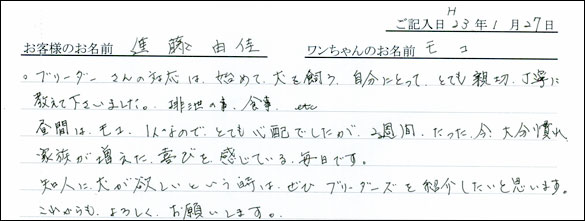 ご記入日 H23年1月27日
お客様のお名前 進藤 由佳 ワンちゃんのお名前 モコ
。ブリーダーさんの対応は、始めて、犬を飼う、自分にとって、とても親切、丁寧に
教えて下さいました。排泄の事、食事、etc
昼間は、モコ、1人なのでとても心配でしたが、2週間、たった、今、大分慣れ
家族が増えた、喜びを感じている、毎日です。
知人に、犬が欲しいという時は、ぜひブリーダーズを紹介したいと思います。
これからも、よろしく、お願いします。